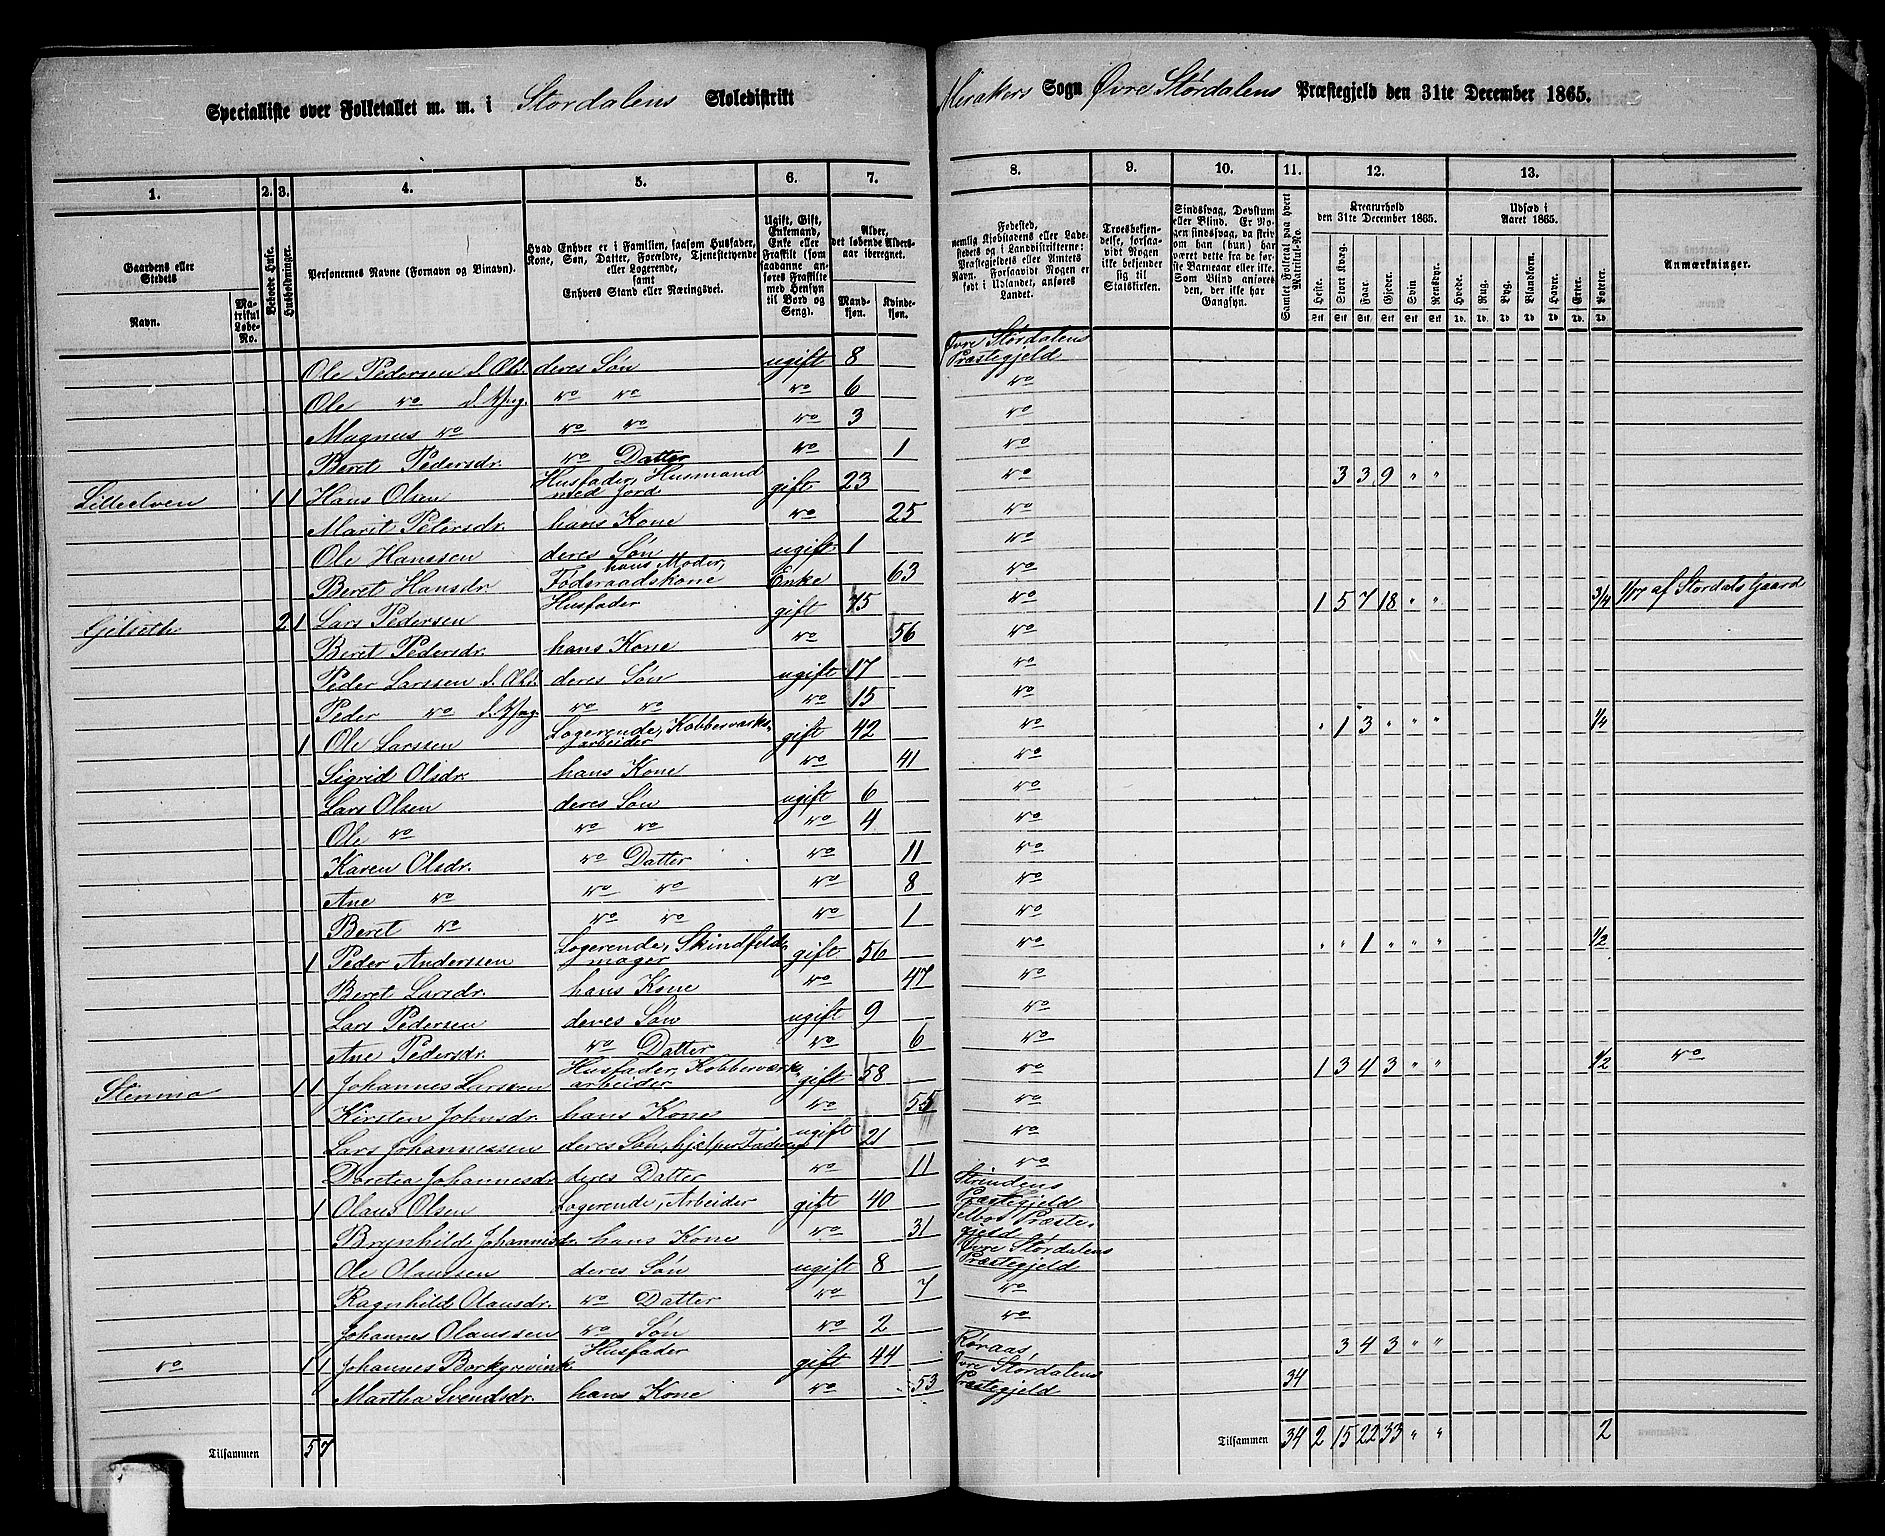 Specialliste over Folketallet m. m. i Stordalens Skoledistrikt
Merakers Sogn Øvre Stordalens Præstegjeld den 31te December 1865.
1. 2. 3. 4. 5. 6. 7. 8. 9. 10. 11. 12. 13.
Gaardens eller Stedets Navn.
Matrikul Løbe-No.
Beboede Huse.
Husholdninger.
Personernes Navne (Fornavn og Binavn).
Hvad Enhver er i Familien, saasom Husfader, Kone, Søn, Datter, Forældre, Tjenestetyende eller Logerende, samt Enhvers Stand eller Næringsvei.
Ugift, Gift, Enkemand, Enke eller Fraskilt (som saadanne anføres Fraskilte med Hensyn til Bord og Seng).
Alder, det løbende Aldersaar iberegnet.
Mandkjøn. Kvindekjøn.
Fødested, nemlig Kjøbstadens eller Ladestedets og i Landdistrikterne: Præstegjeldets eller Amtets Navn. Forsaavidt Nogen er født i Udlandet, anføres Landet.
Troesbekjendelse, forsaavidt Nogen ikke bekjender sig til Statskirken.
Sindssvag, Døvstum eller Blind. Er Nogen sindssvag, da skrives om han (hun) har været dette fra de første Barneaar eller ikke. Som Blind anføres den, der ikke har Gangsyn.
Samlet Folketal paa hvert Matrikul-No.
Kreaturhold den 31te December 1865.
Heste. Stort Kvæg. Faar. Gjeder. Svin. Rensdyr.
Udsæd i Aaret 1865.
Hvede. Rug. Byg. Blandkorn. Havre. Erter. Poteter.
Anmærkninger.
Ole Pedersen d. Æld. deres Søn ugift 8 Øvre Stordalens Præstegjeld
Ole do d. Yng. do do do 6 do
Magnus do do do do 3 do
Beret Pedersdr. do Datter do 1 do
Lilleelven 1 1 Hans Olsen Husfader, Husmand med Jord gift 23 do 3 3 9 " "
Marit Petersdr. hans Kone do 25 do
Ole Hanssen deres Søn ugift 1 do
Beret Hansdr. hans Moder, Føderaadskone Enke 63 do
Gilseth 2 1 Lars Pedersen Husfader gift 75 do 1 5 7 18 " " 3/4 af Stordals Gaard
Beret Pedersdr. hans Kone do 56 do
Peder Larssen d. Æld. deres Søn ugift 17 do
Peder do d. Yng. do do do 15 do
1 Ole Larssen Logerende, Kobberværksarbeider gift 42 do " 1 3 " " " 1/4
Sigrid Olsdr. hans Kone do 41 do
Lars Olsen deres Søn ugift 6 do
Ole do do do do 4 do
Karen Olsdr. do Datter do 11 do
Ane do do do do 8 do
Beret do do do do 1 do
1 Peder Anderssen Logerende, Skindfeldmager gift 56 do " " 1 " " " 1/2
Beret Larsdr. hans Kone do 47 do
Lars Pedersen deres Søn ugift 9 do
Ane Pedersdr. do Datter do 6 do
Stenmo 1 1 Johannes Larssen Husfader, Kobberværksarbeider gift 58 do 1 3 4 3 " " 1/2 do
Kirsten Johnsdr. hans Kone do 55 do
Lars Johannessen deres Søn, hjelper Faderen ugift 21 do
Doretea Johannesdr. deres Datter do 11 do
1 Olaus Olsen Logerende, Arbeider gift 40 Strindens Præstegjeld
Brynhild Johannesdr. hans Kone do 31 Selbos Præstegjeld
Ole Olaussen deres Søn ugift 8 Øvre Stordalens Præstegjeld
Ragnhild Olausdr. do Datter do 7 do
Johannes Olaussen do Søn do 2 do
do 1 1 Johannes Borkgrevink Husfader gift 44 Røraas, 3 4 3 " "
Martha Svendsdr. hans Kone do 53 Øvre Stordalens Præstegjeld 34
Tilsammen 5 7
Tilsammen 34 2 15 22 33 " " 2